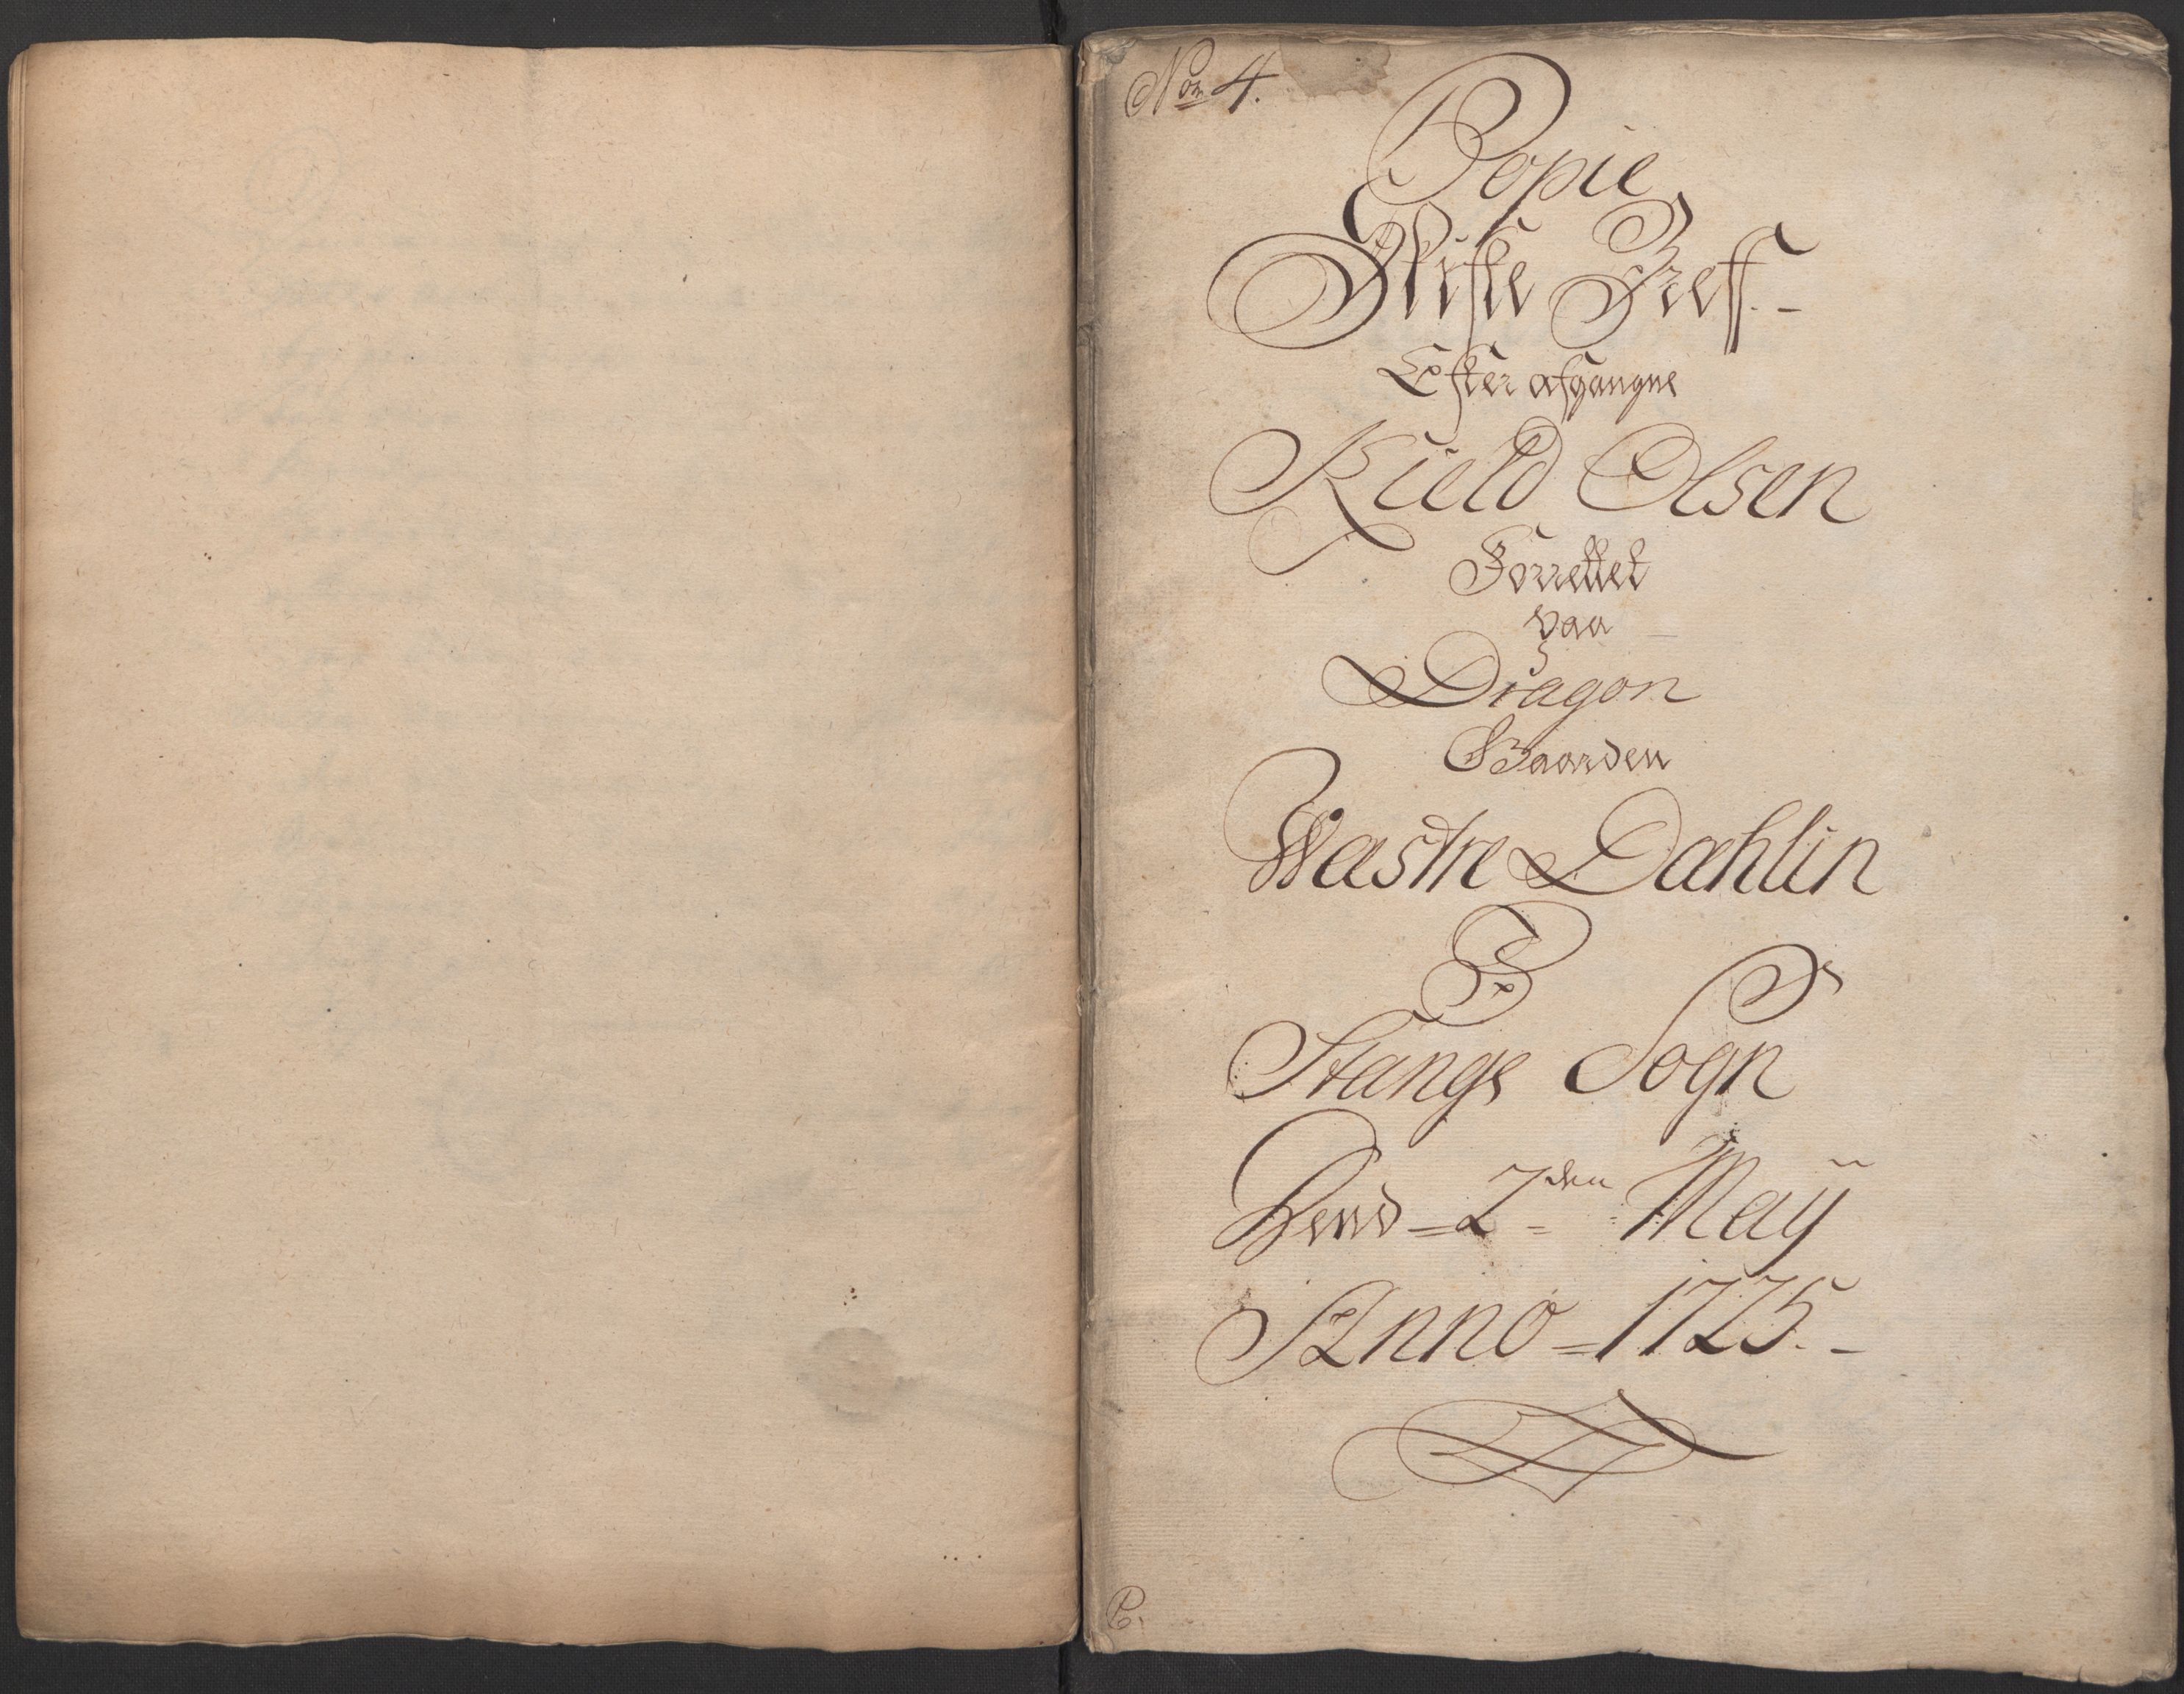 No 4.
Copie
Skifte Breff. -
Efter afgangne
Kield Olsen
Forrettet
paa
Dragon
Gaarden
Wæstre Dæhlin
I
Stange Sogn
Dend = 2den = Maÿ
Anno = 1725. -
C.